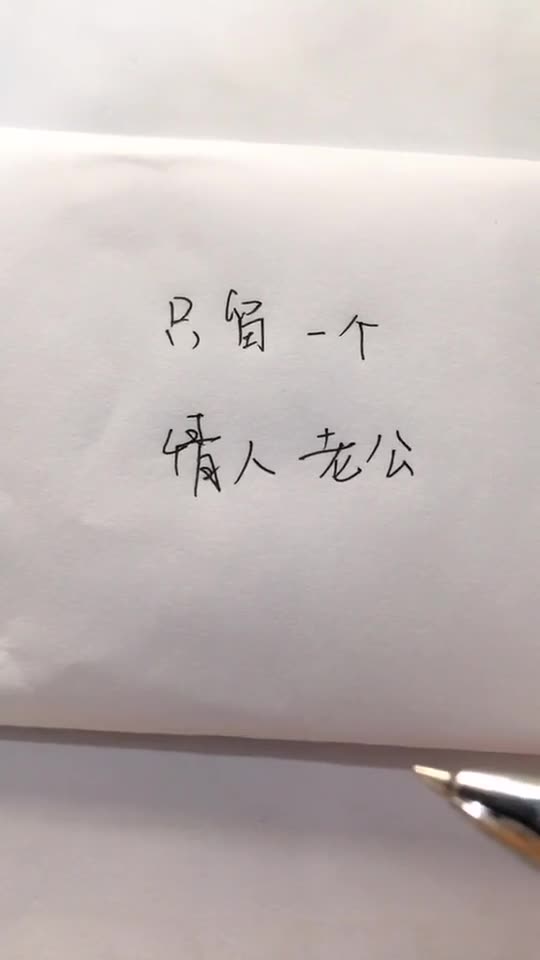 只留一个
情人 老公